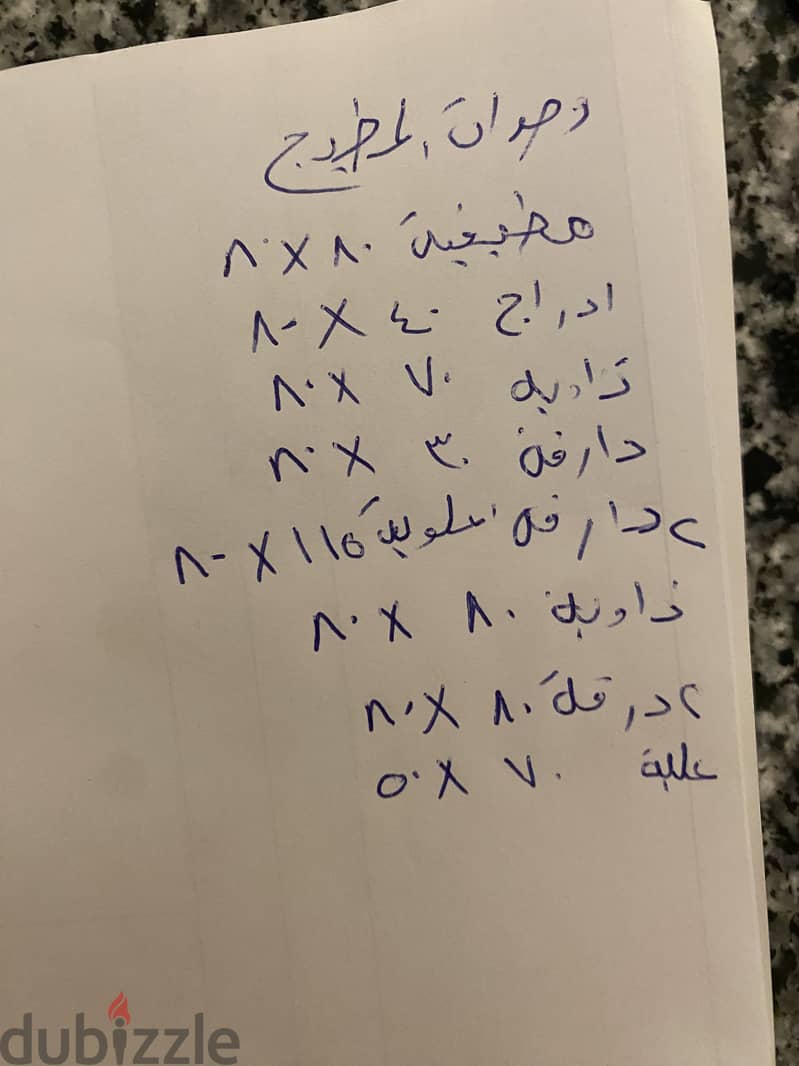 وحدات المطبخ
مطبقية ٨٠ X ٨٠
ادراج ٤٠ X ٨٠
زاوية ٧٠ X ٨٠
دارفة ٣٠ X ٨٠
٢ دارفة علوية ١١٥ X ٨٠
زاوية ٨٠ X ٨٠
٢ درفة ٨٠ X ٨٠
علية ٧٠ X ٥٠
dubizzle